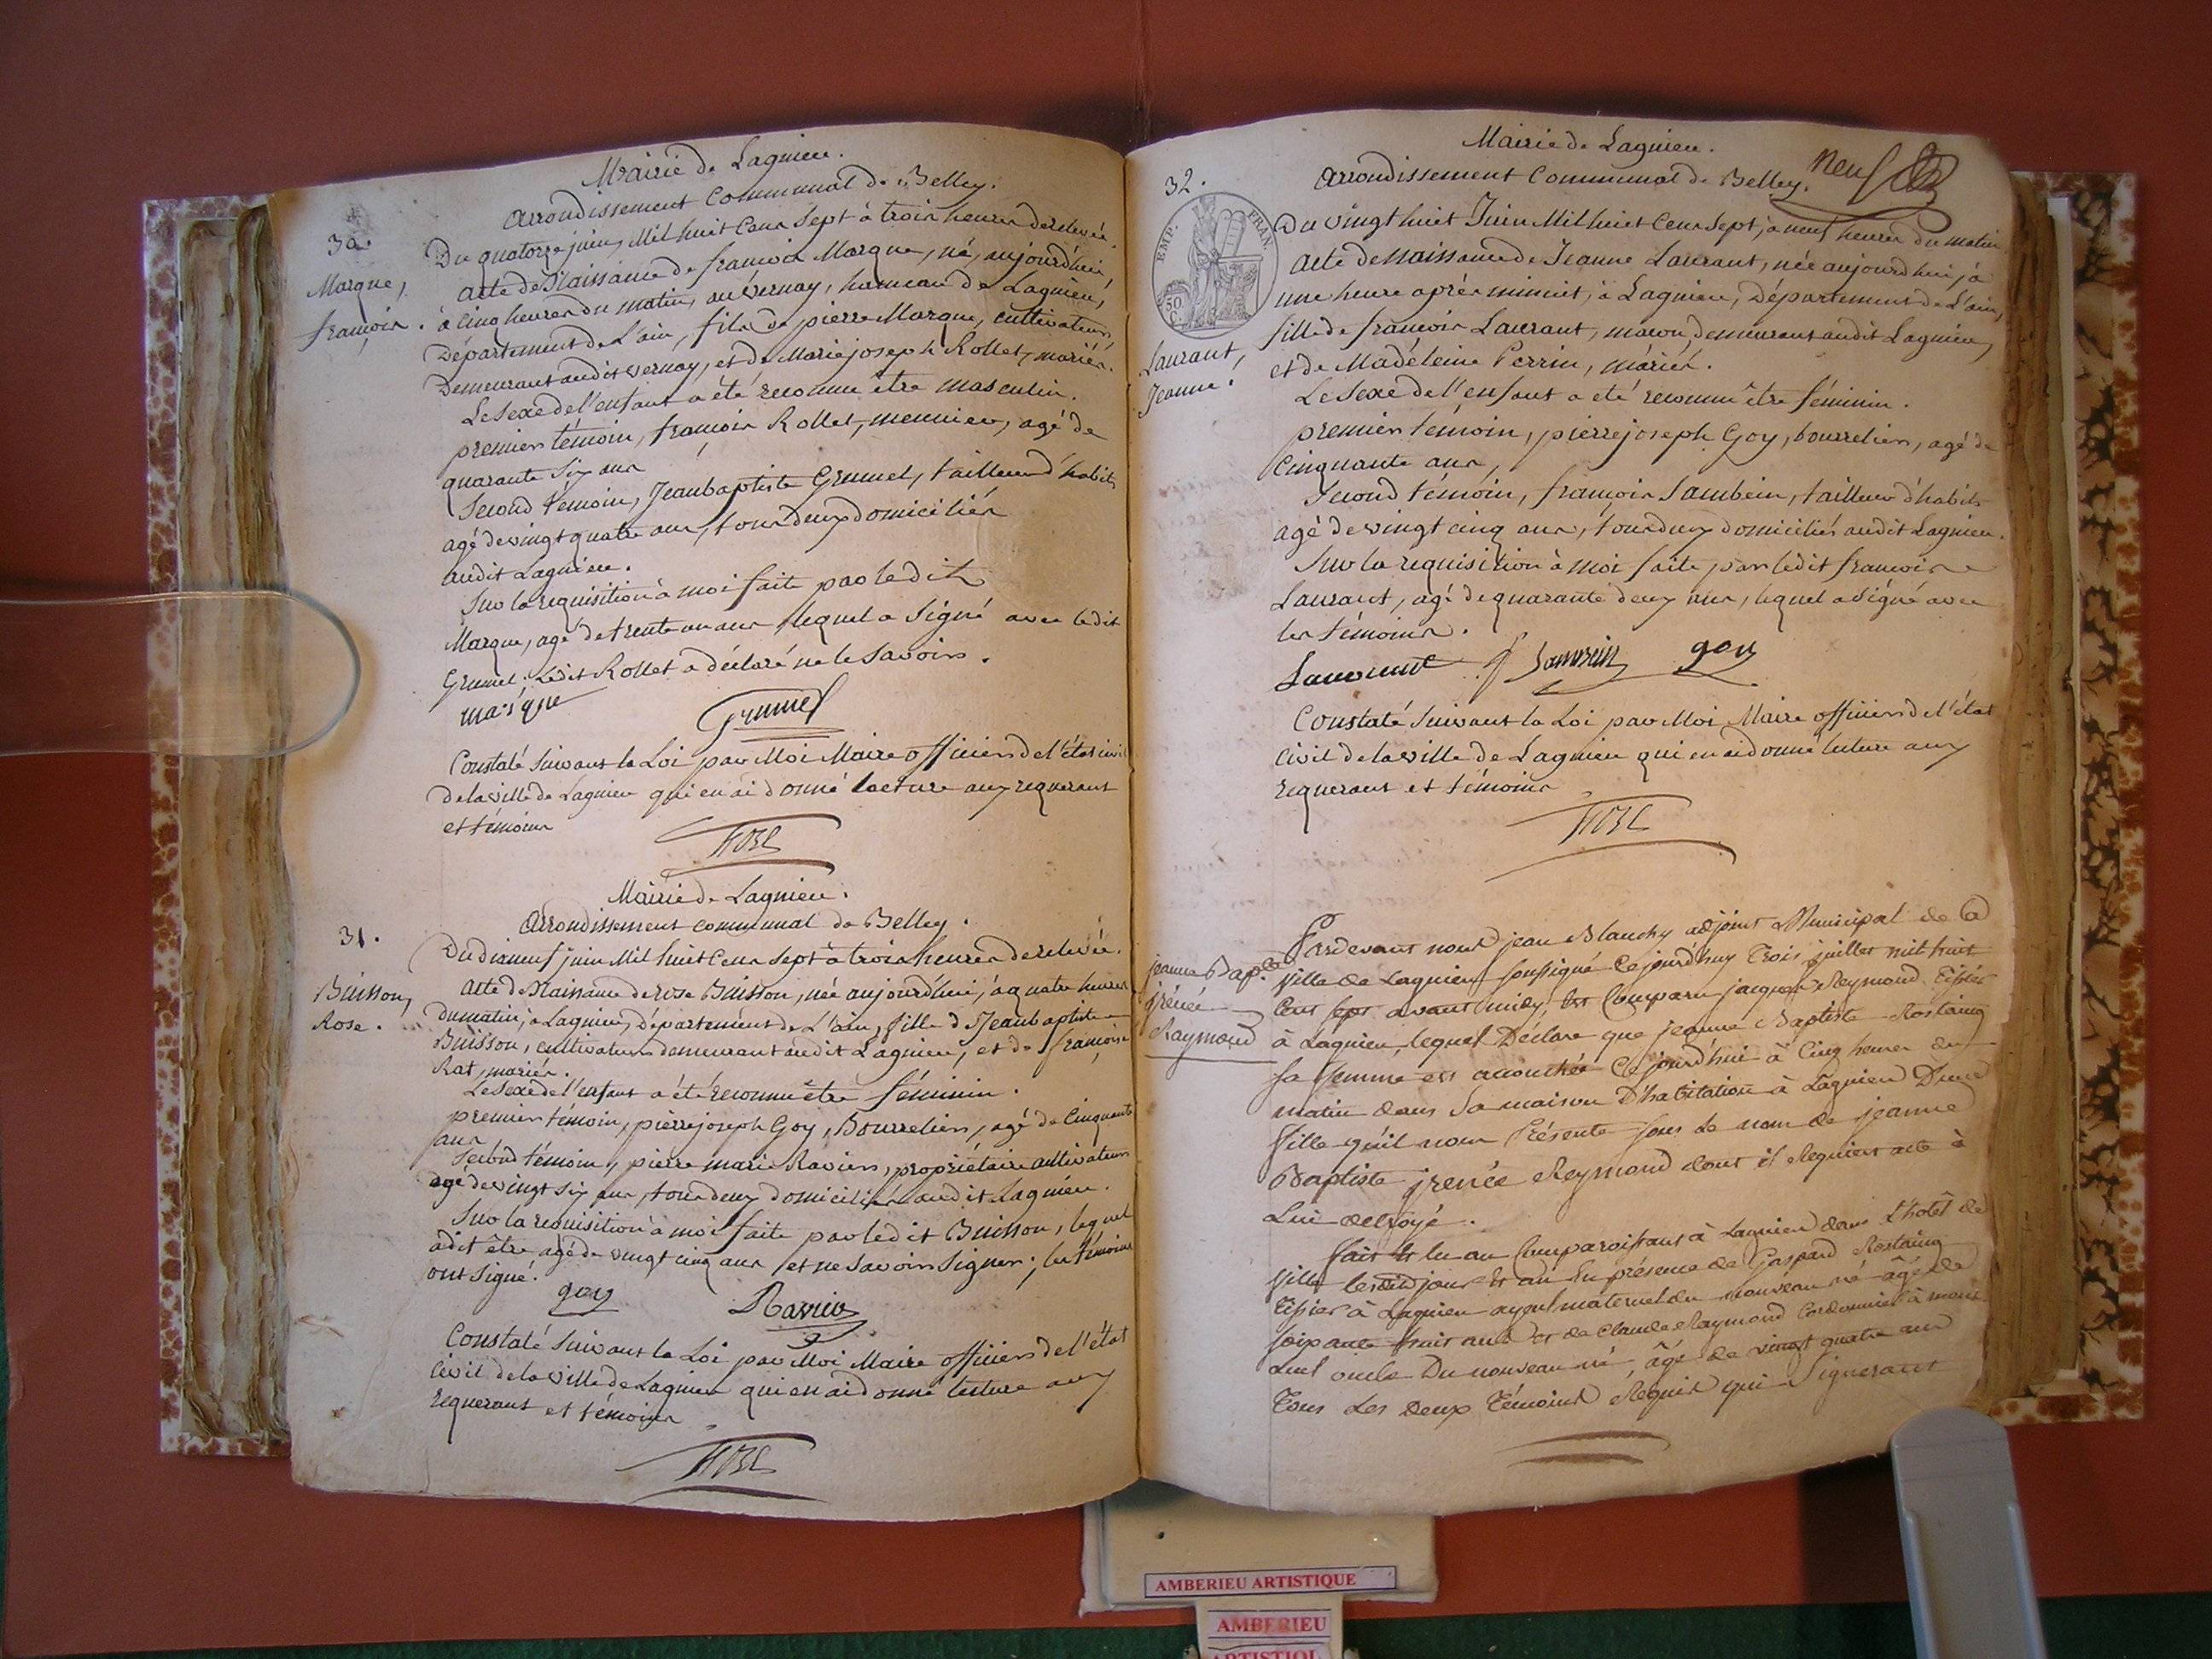 Mairie de Lagnieu.
Arrondissement Communal de Belley.
30.
Du quatorze juin, Mil huit Cent Sept à trois heures de relevée.
Marque,
françois.
Acte de Naissance de françois Marque, né, aujourd'hui,
à cinq heures du matin, au Vernay, hameau de Lagnieu,
Département de L'ain, fils de pierre Marque, cultivateur,
Demeurant audit vernay, et de Marie joseph Rollet, mariés.
Le Sexe de l'enfant a été reconnu être masculin.
premier témoin, françois Rollet, meunier, agé de
quarante Six ans
Second témoin, Jean baptiste Grumel, tailleur d'habits
agé de vingt quatre ans, tous deux domiciliés
audit Lagnieu.
Sur la requisition à moi faite par ledit
Marque, agé de trente un ans lequel a Signé avec ledit
Grumel. Ledit Rollet a déclaré ne le Savoir.
marque Grumel
Constaté Suivant la Loi par Moi Maire officier de l'état civil
de la ville de Lagnieu qui en ai donné lecture aux requerant
et témoins
Mairie de Lagnieu.
Arrondissement communal de Belley.
31.
Du dixneuf juin Mil huit Cent Sept à trois heures de relevée.
Buisson,
Rose.
Acte de Naissance de rose Buisson, née aujourd'hui, à quatre heures
du matin, à Lagnieu, Département de L'ain, fille de Jean baptiste
Buisson, cultivateur demeurant audit Lagnieu, et de françoise
Rat, mariés.
Le Sexe de l'enfant a été reconnu être féminin.
premier témoin, pierre joseph Goy, Bourrelier, agé de Cinquante
ans
Second témoin, pierre marie Ravier, propriétaire cultivateur
agé de vingt Six ans, tous deux domiciliés audit Lagnieu.
Sur la requisition à moi faite par ledit Buisson, lequel
a dit être agé de vingt cinq ans et ne Savoir Signer; les témoins
ont Signé.
goy Ravier
Constaté Suivant la Loi par Moi Maire officier de l'état
Civil de la ville de Lagnieu qui en ai donné lecture aux
requerant et témoins
Mairie de Lagnieu.
Arrondissement Communal de Belley.
neuf
32.
EMP. FRAN.
50 C.
Du vingt huit Juin Mil huit Cent Sept, à neuf heures du matin
Laurant,
Jeanne.
Acte de naissance de Jeanne Laurant, née aujourd'hui, à
une heure après minuit, à Lagnieu, Département de L'ain,
fille de françois Laurant, macon, demeurant audit Lagnieu,
et de Madéleine Perrin, mariés.
Le Sexe de l'enfant a eté reconnu être féminin.
premier témoin, pierre joseph Goy, bourrelier, agé de
Cinquante ans,
Second témoin, françois Sambein, tailleur d'habits
agé de vingt cinq ans, tous deux domiciliés audit Lagnieu.
Sur la requisition à moi faite par ledit françois
Laurant, agé de quarante deux ans, lequel a Signé avec
les témoins.
goy
Constaté Suivant la Loi par Moi Maire officier de l'état
Civil de la ville de Lagnieu qui en ai donné lecture aux
requerant et témoins
jeanne Bapte.
jrénée
Raymond
Pardevant nous jean Blanchy adjoint Municipal de la
Ville de Lagnieu soussigné Cejourd'huy Trois juillet mil huit
Cent sept avant midy, est Comparu jacques Reymond Tissier
à Lagnieu, lequel Déclare que jeanne Baptiste Rostaing
sa femme est accouchée Cejourd'hui à Cinq heures du
matin dans Sa maison D'habitation à Lagnieu D'une
fille qu'il nous Présente sous le nom de jeanne
Baptiste jrenée Reymond dont il Requiert acte à
Lui octroyé.
fait et lu au Comparoissant à Lagnieu dans L'hotel de
Ville lesdits jour et an En présence de Gaspard Rostaing
Tissier à Lagnieu ayeul maternel du nouveau né âgé de
soixante huit ans et de Claude Raymond Cordonnier à mont
Luel oncle Du nouveau né âgé de vingt quatre ans
Tous Les Deux Témoins Requis qui Signeront
AMBERIEU ARTISTIQUE
AMBERIEU